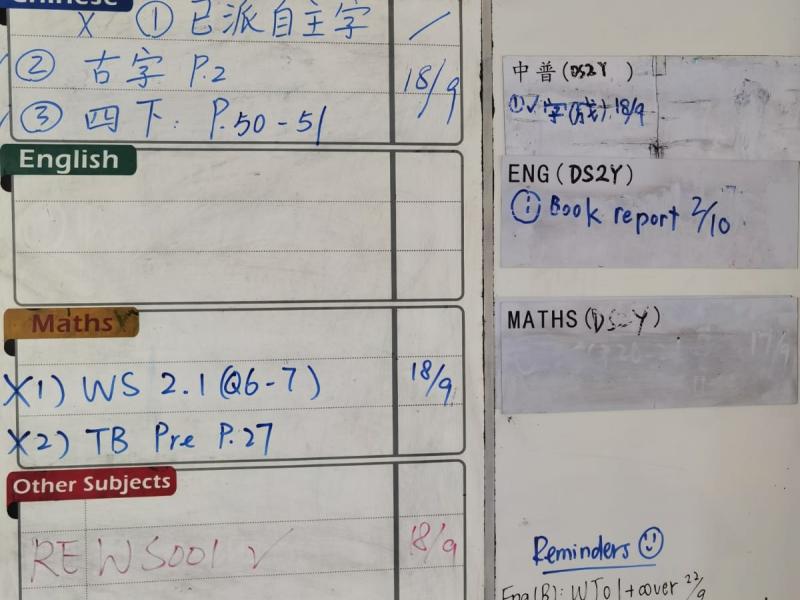 Chinese
X ① 已派自主字 /
② 古字 P.2 18/9
③ 四下: P.50-51
English
Maths
X1) WS 2.1 (Q6-7) 18/9
X2) TB Pre P.27
Other Subjects
RE WS001 ✓ 18/9
中普(DS2Y )
①✓ 字 18/9
ENG(DS2Y)
① Book report 2/10
MATHS(DS2Y)
17/9
Reminders ☺
Eng(B): WJ01+cover 22/9